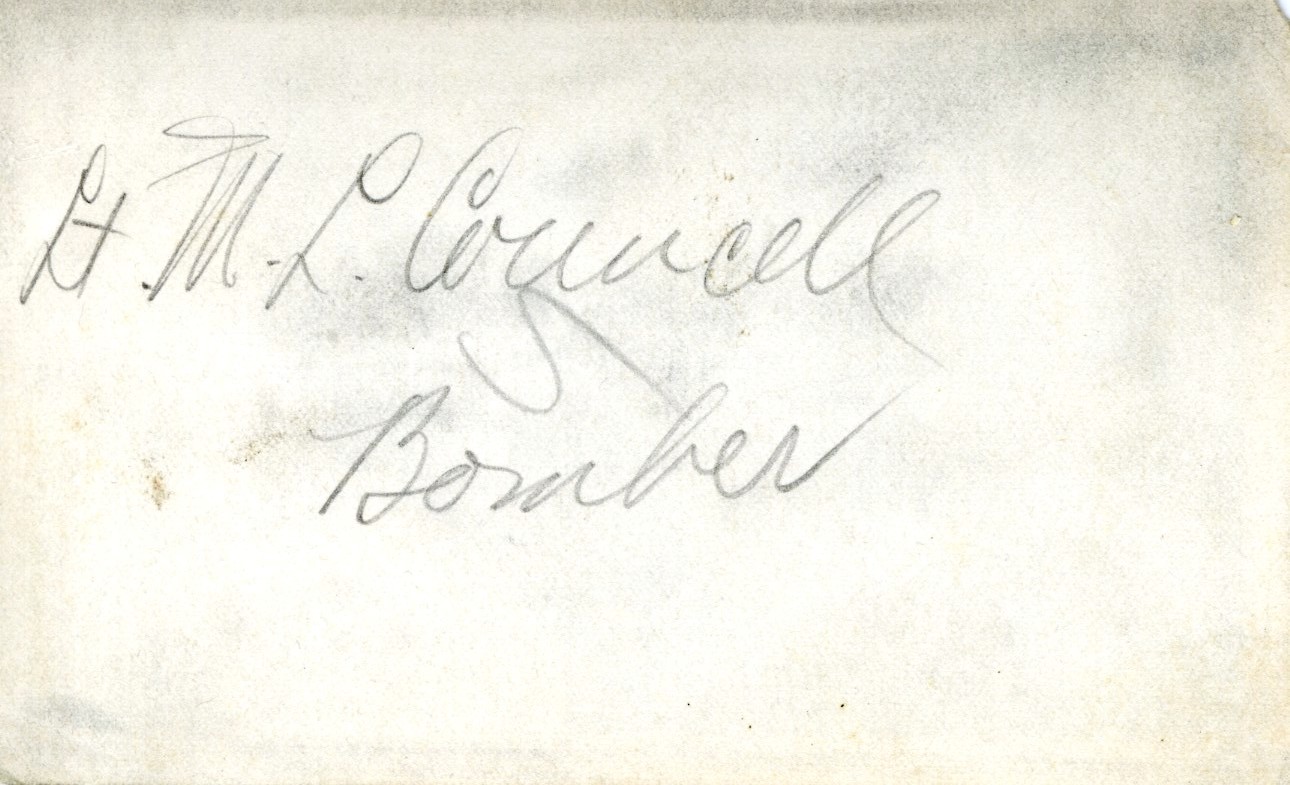 Lt. M. L. Councell
Bomber